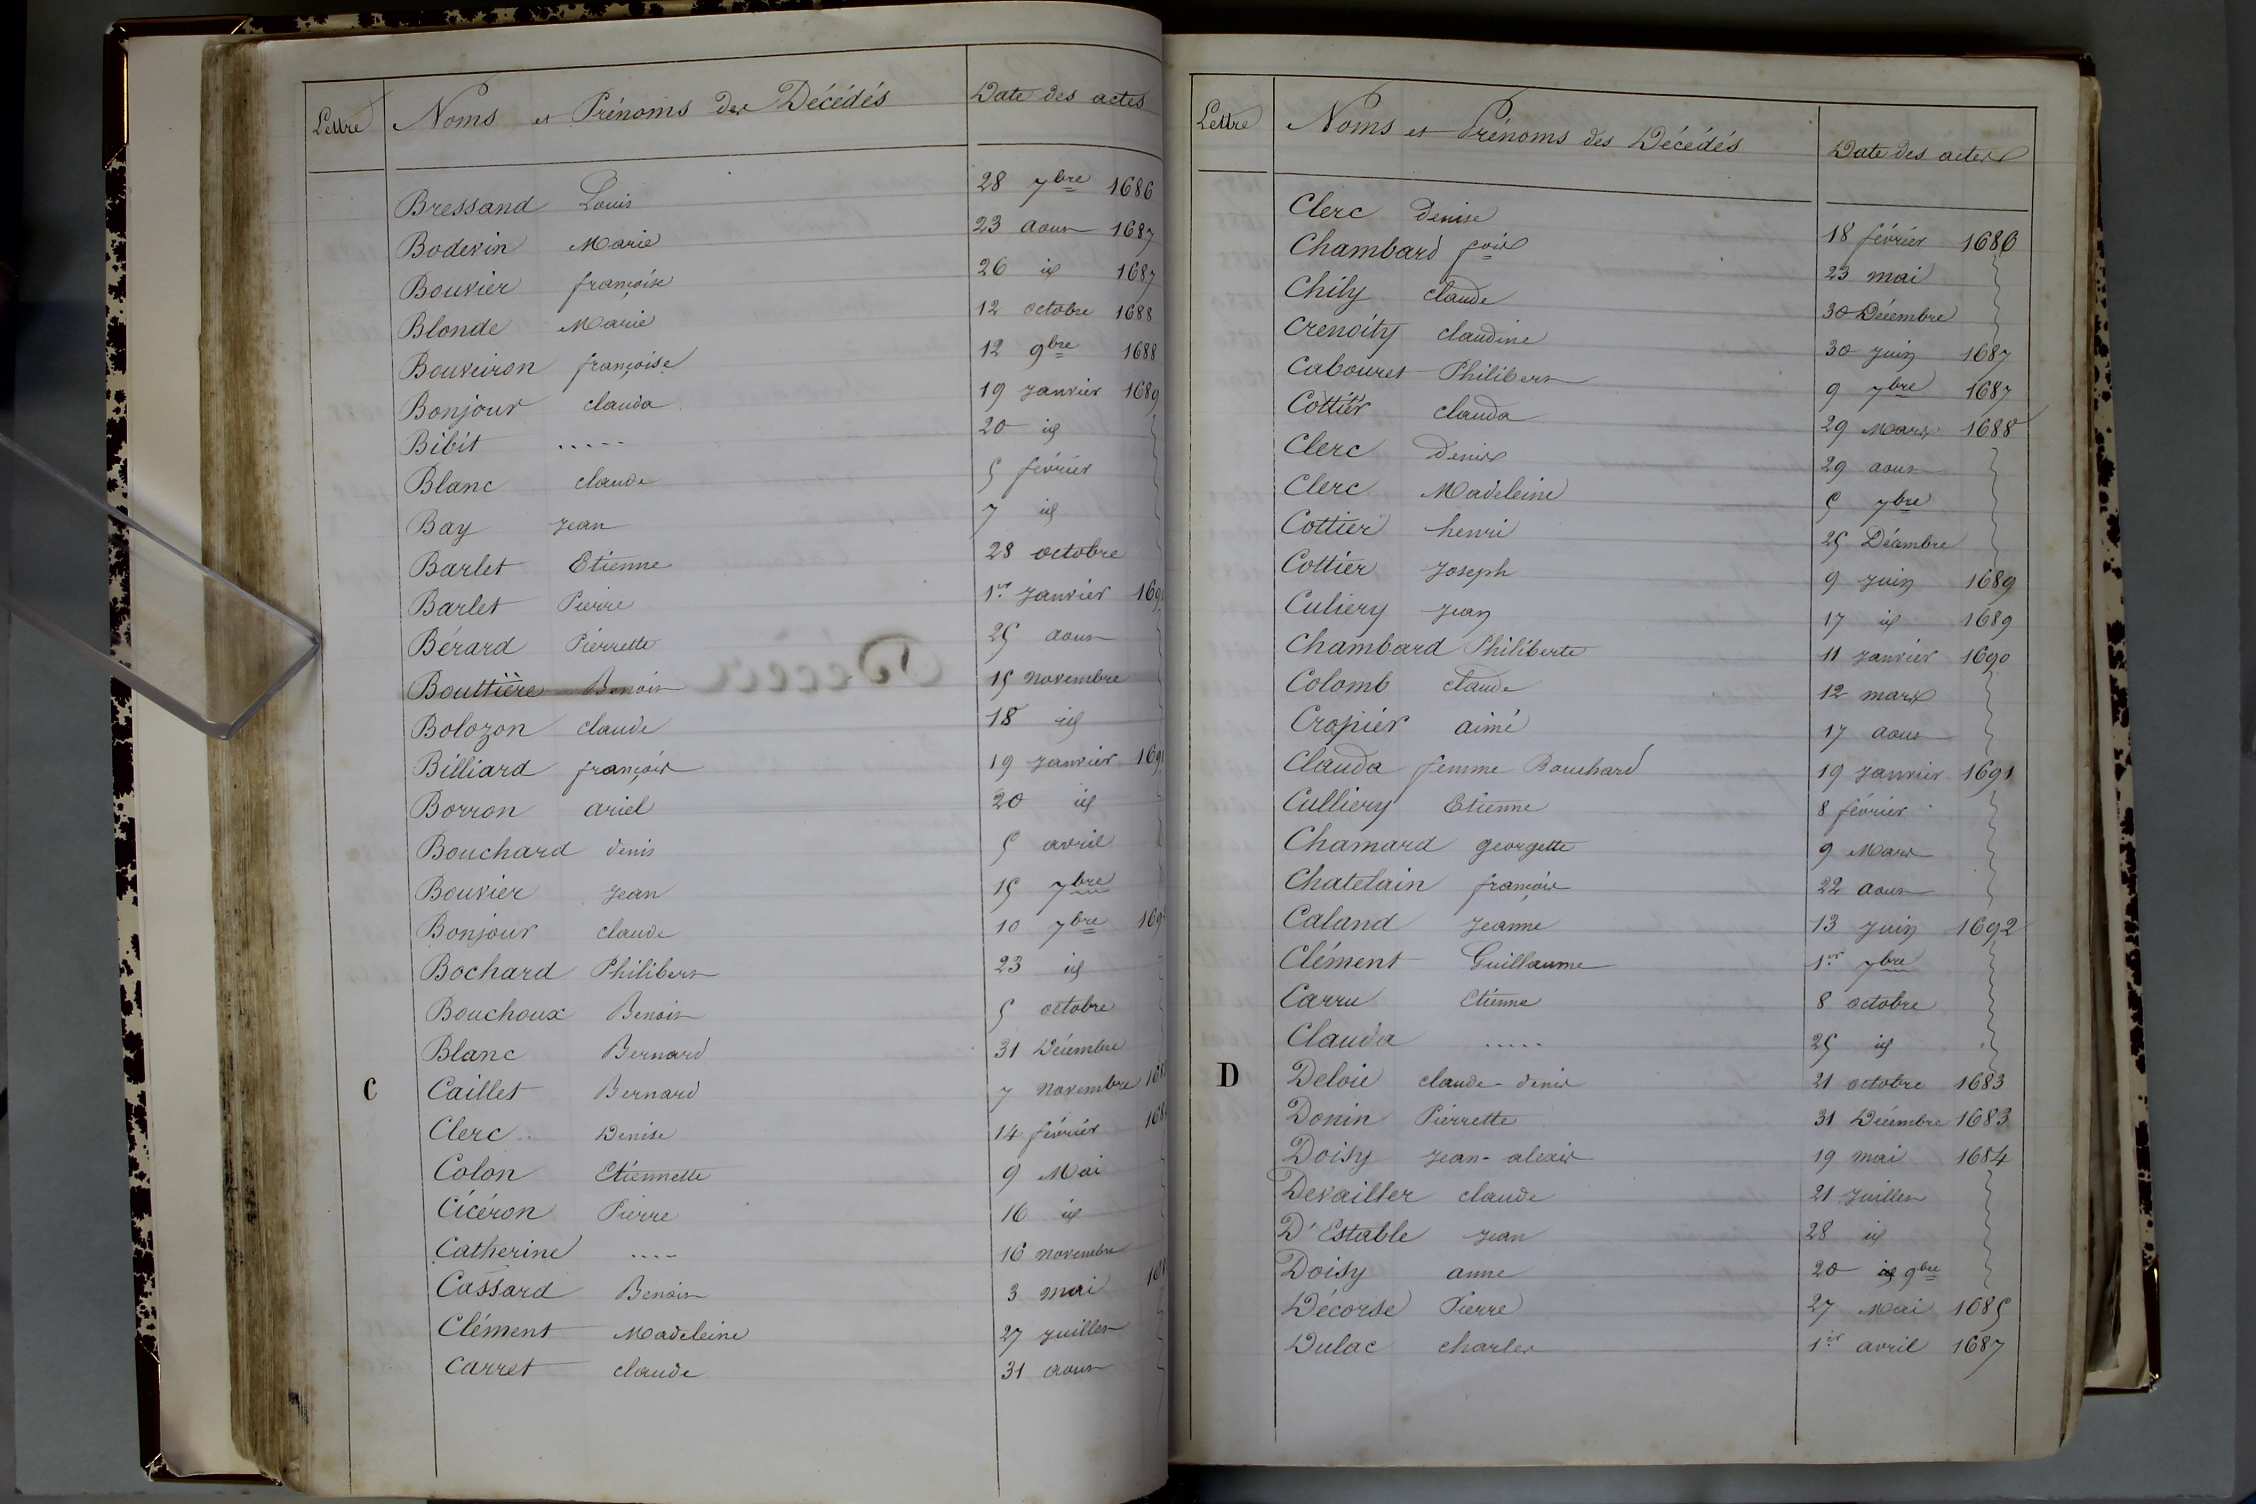 Lettre Noms et Prénoms des Décédés Date des actes
Bressand Louis 28 7bre 1686
Bodevin Marie 23 aout 1687
Bouvier françoise 26 id 1687
Blonde Marie 12 octobre 1688
Bouveiron françoise 12 9bre 1688
Bonjour clauda 19 Janvier 1689
Bibit ..... 20 id
Blanc claude 5 février
Bay Jean 7 id
Barlet Etienne 28 octobre
Barlet Pierre 1er Janvier
Bérard Pierrette 25 aout
Bouttière Benoit 15 novembre
Bolozon claude 18 id
Billiard françois 19 Janvier 1691
Borron ariel 20 id
Bouchard denis 5 avril
Bouvier Jean 15 7bre
Bonjour claude 10 7bre
Bochard Philibert 23 id
Bouchoux Benoit 5 octobre
Blanc Bernard 31 Décembre
C Caillet Bernard 7 novembre
Clerc Denise 14 février
Colon Etiennette 9 Mai
Cicéron Pierre 16 id
Catherine .... 16 novembre
Cassard Benoit 3 mai
Clément Madeleine 27 Juillet
Carret claude 31 aout
Lettre Noms et Prénoms des Décédés Date des actes
Clerc Denise 18 février 1686
Chambard 23 mai
Chily claude 30 Décembre
Crenoity claudine 30 Juin 1687
Cabouret Philibert 9 7bre 1687
Cottier clauda 29 Mars 1688
Clerc Denis 29 aout
Clerc Madeleine 5 7bre
Cottier henri 25 Décembre
Cottier Joseph 9 Juin 1689
Culiery Jean 17 id 1689
Chambard Philiberte 11 Janvier 1690
Colomb claude 12 mars
Cropier aimé 17 aout
Clauda femme Bouchard 19 Janvier 1691
Culliery Etienne 8 février
Chamard georgette 9 Mars
Chatelain françois 22 aout
Caland Jeanne 13 Juin 1692
Clément Guillaume 1er 7bre
Carru Etienne 8 octobre
Clauda ..... 25 id
D Deloie claude-denis 21 octobre 1683
Donin Pierrette 31 Décembre 1683
Doisy Jean-alexis 19 mai 1684
Devailler claude 21 Juillet
D'Estable Jean 28 id
Doisy anne 20 id 9bre
Décorse Pierre 27 Mai 1685
Dulac charles 1er avril 1687